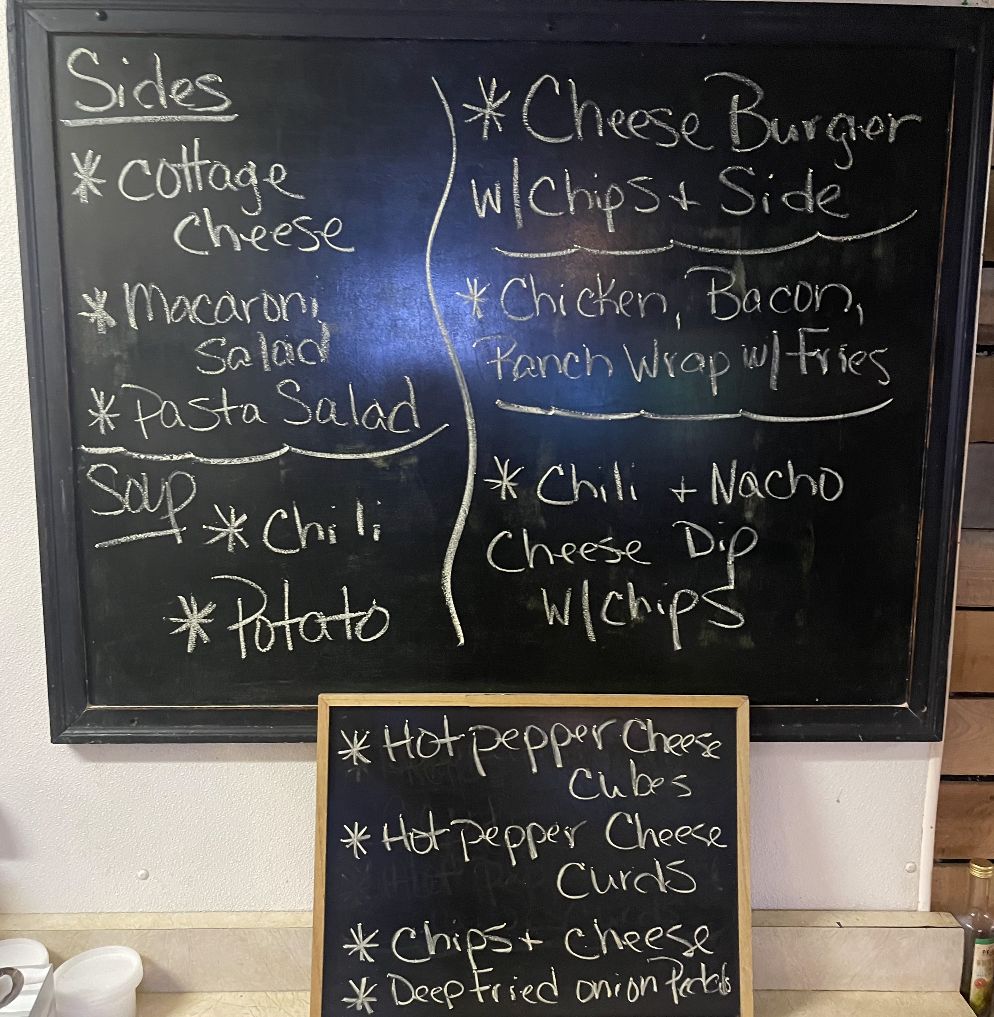 Sides
* Cottage
Cheese
* Macaroni
Salad
* Pasta Salad
Soup
* Chili
* Potato
* Cheese Burger
w/Chips + Side
* Chicken, Bacon,
Ranch Wrap w/ Fries
* Chili + Nacho
Cheese Dip
w/chips
* Hot pepper Cheese
Cubes
* Hot pepper Cheese
Curds
* Chips + cheese
* Deep Fried onion Petals